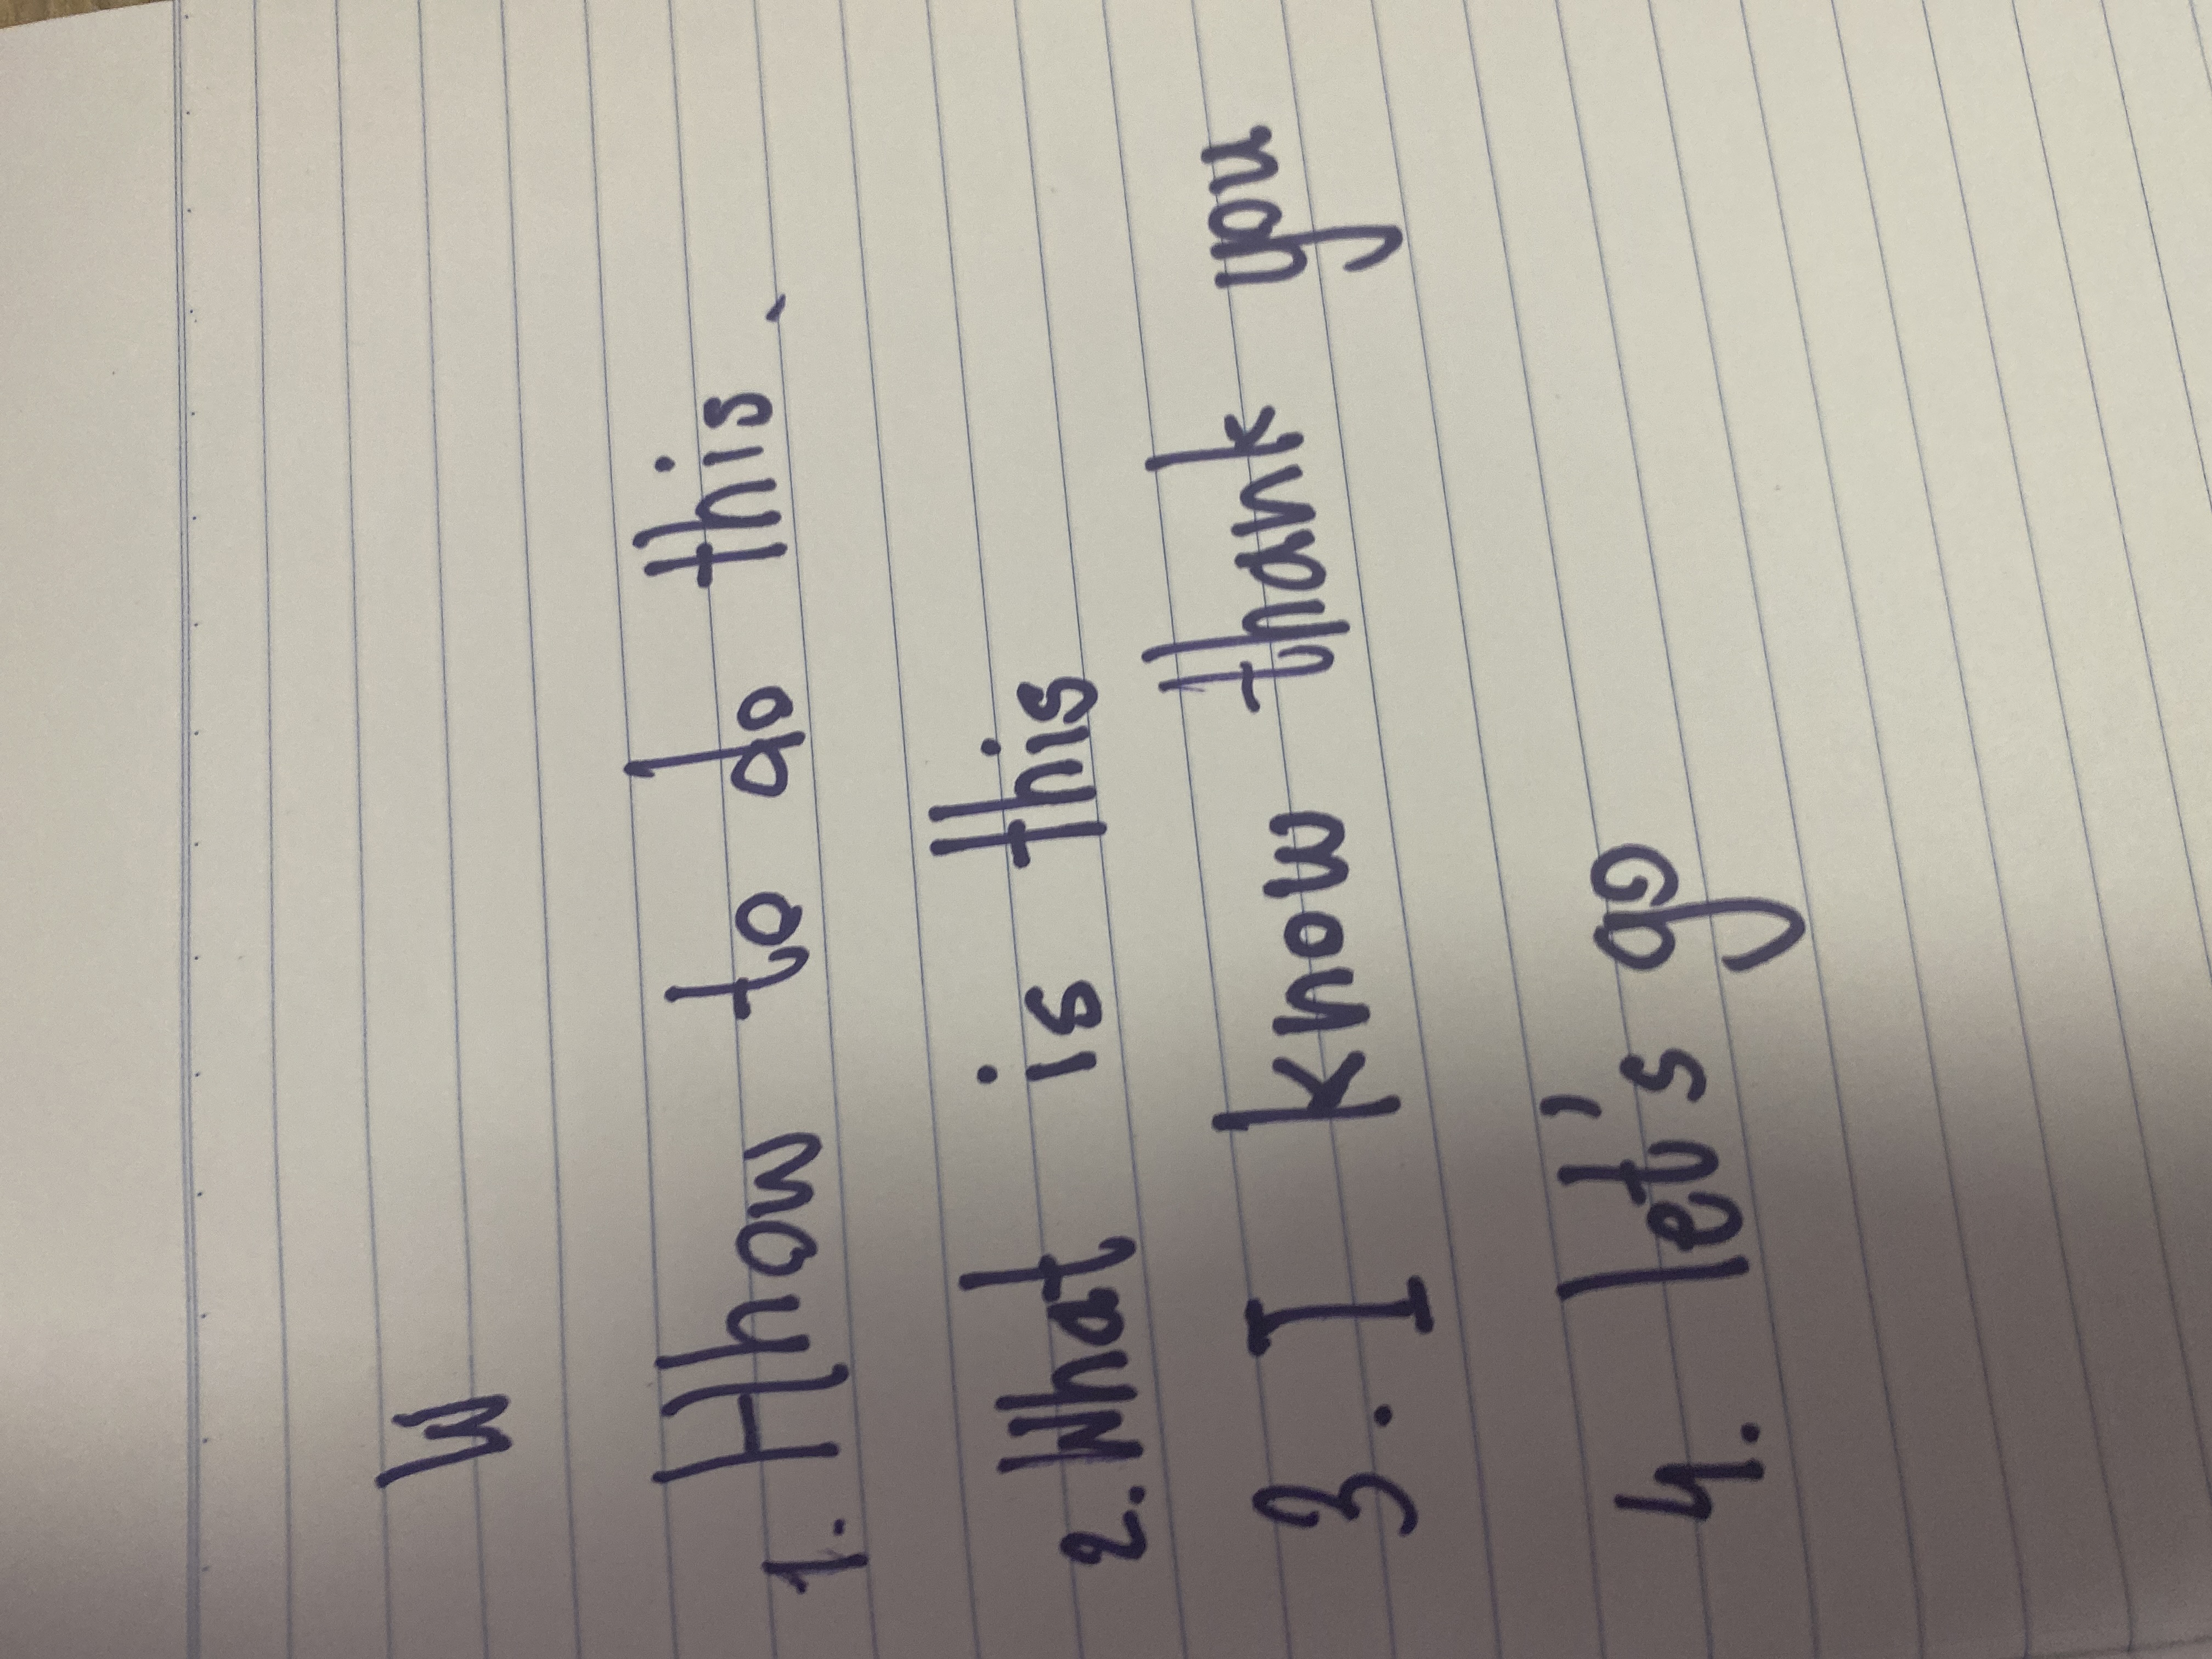 W
1. Hhow to do this.
2. What is this
3. I know thank you
4. let's go